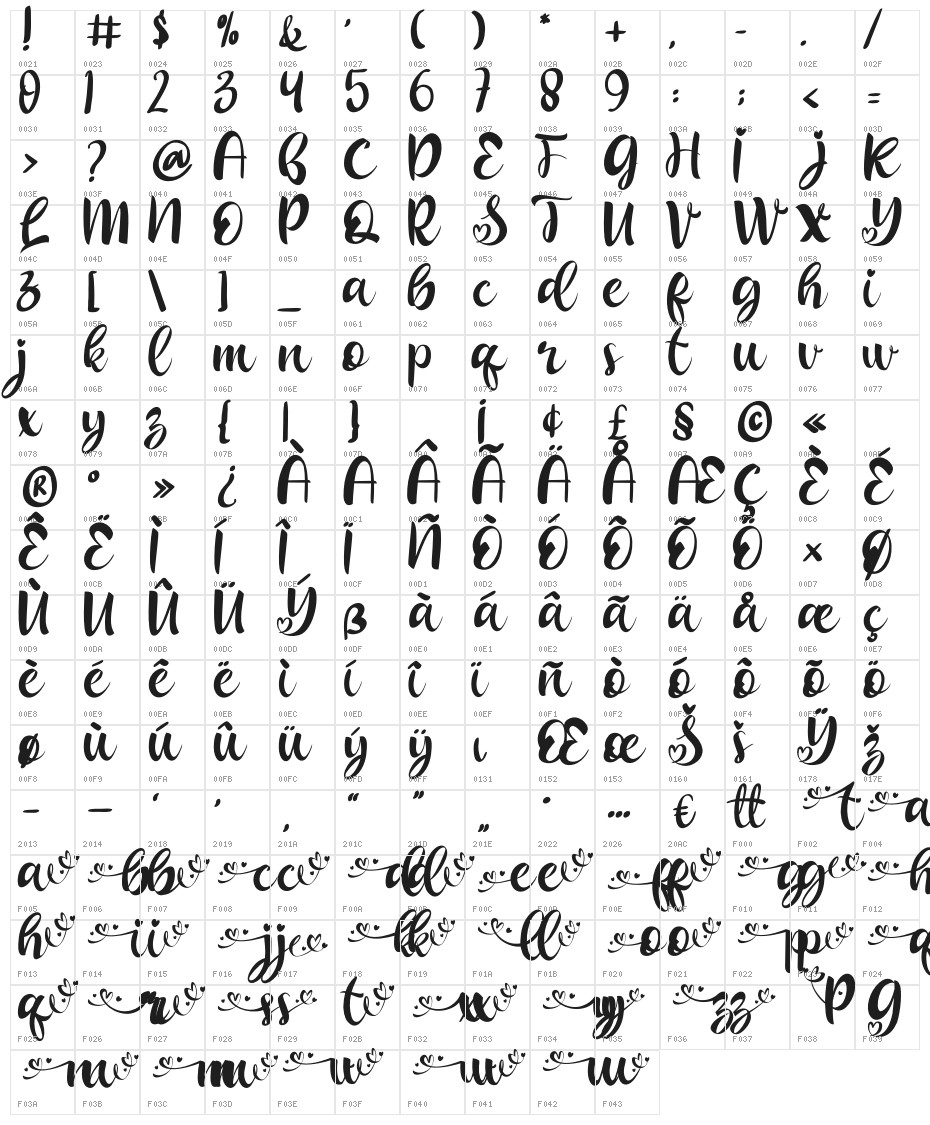 ! # $ % & ' ( ) * + , - . /
0021 0023 0024 0025 0026 0027 0028 0029 002A 002B 002C 002D 002E 002F
0 1 2 3 4 5 6 7 8 9 : ; < =
0030 0031 0032 0033 0034 0035 0036 0037 0038 0039 003A 003B 003C 003D
> ? @ A B C D E F G H I J K
003E 003F 0040 0041 0042 0043 0044 0045 0046 0047 0048 0049 004A 004B
L M N O P Q R S T U V W X Y
004C 004D 004E 004F 0050 0051 0052 0053 0054 0055 0056 0057 0058 0059
Z [ \ ] _ a b c d e f g h i
005A 005B 005C 005D 005F 0061 0062 0063 0064 0065 0066 0067 0068 0069
j k l m n o p q r s t u v w
006A 006B 006C 006D 006E 006F 0070 0071 0072 0073 0074 0075 0076 0077
x y z { | } ¡ ¢ £ § © «
0078 0079 007A 007B 007C 007D 00A0 00A1 00A2 00A3 00A7 00A9 00AB 00AD
® ° » ¿ À Á Â Ã Ä Å Æ Ç È É
00AE 00B0 00BB 00BF 00C0 00C1 00C2 00C3 00C4 00C5 00C6 00C7 00C8 00C9
Ê Ë Ì Í Î Ï Ñ Ò Ó Ô Õ Ö × Ø
00CA 00CB 00CC 00CD 00CE 00CF 00D1 00D2 00D3 00D4 00D5 00D6 00D7 00D8
Ù Ú Û Ü Ý ß à á â ã ä å æ ç
00D9 00DA 00DB 00DC 00DD 00DF 00E0 00E1 00E2 00E3 00E4 00E5 00E6 00E7
è é ê ë ì í î ï ñ ò ó ô õ ö
00E8 00E9 00EA 00EB 00EC 00ED 00EE 00EF 00F1 00F2 00F3 00F4 00F5 00F6
ø ù ú û ü ý ÿ ı Œ œ Š š Ÿ ž
00F8 00F9 00FA 00FB 00FC 00FD 00FF 0131 0152 0153 0160 0161 0178 017E
– — ‘ ’ ‚ “ ” „ • … € tt t a
2013 2014 2018 2019 201A 201C 201D 201E 2022 2026 20AC F000 F002 F004
a b b c c d d e e f f g g h
F005 F006 F007 F008 F009 F00A F00B F00C F00D F00E F00F F010 F011 F012
h i i j j k k l l o o p p q
F013 F014 F015 F016 F017 F018 F019 F01A F01B F020 F021 F022 F023 F024
q r r s s t x x y y z z p g
F025 F026 F027 F028 F029 F02B F032 F033 F034 F035 F036 F037 F038 F039
n n m m
F03A F03B F03C F03D F03E F03F F040 F041 F042 F043